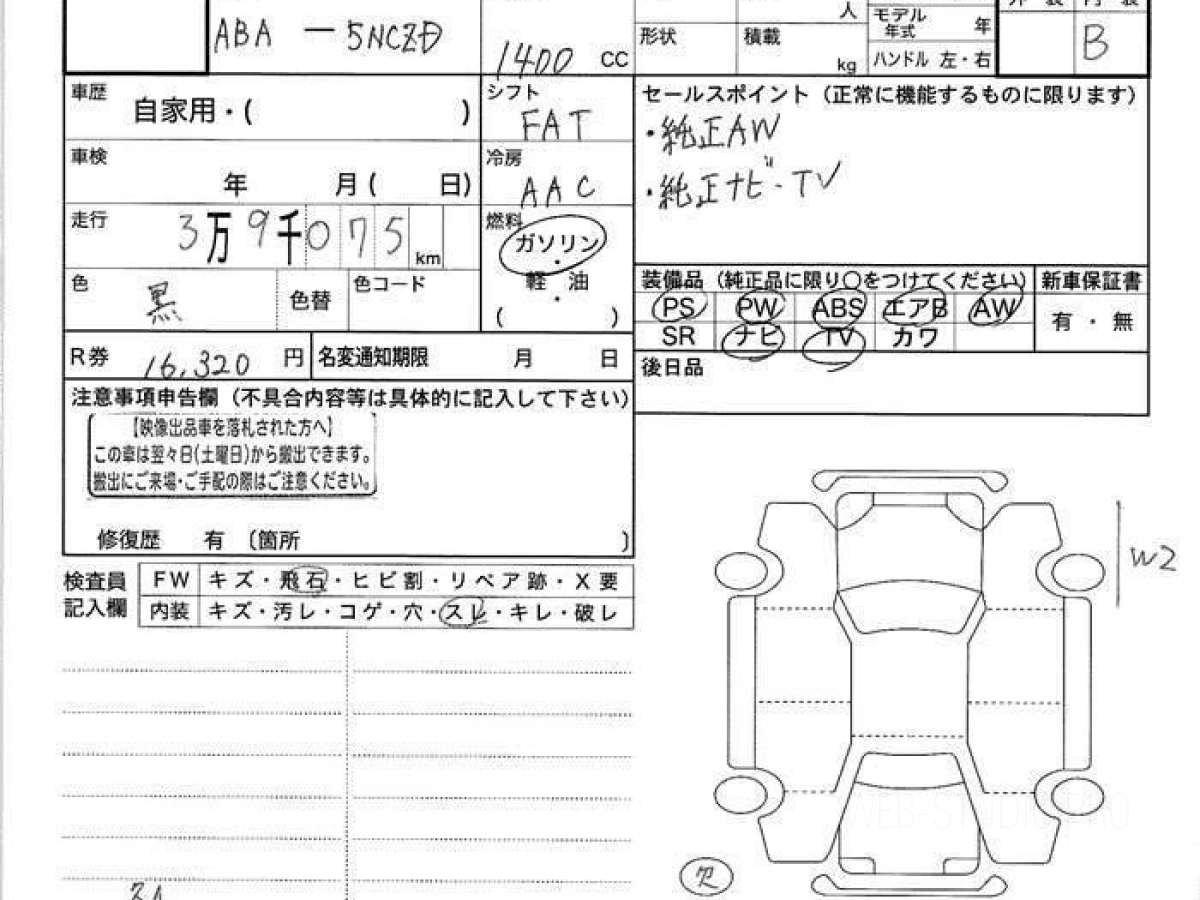 ABA - 5NCZD
1400 cc
人
形状
積載
kg
モデル年式 年
ハンドル 左・右
B
車歴 自家用・( )
シフト FAT
セールスポイント（正常に機能するものに限ります）
・純正AW
・純正ナビ・TV
車検 年 月( 日)
冷房 AAC
走行 3万9千075 km
燃料 ガソリン
・
軽油
・
( )
色 黒
色替
色コード
装備品（純正品に限り○をつけてください）
新車保証書
PS PW ABS エアB AW
有・無
SR ナビ TV カワ
R券 16,320 円
名変通知期限 月 日
後日品
注意事項申告欄（不具合内容等は具体的に記入して下さい）
【映像出品車を落札された方へ】
この車は翌々日(土曜日)から搬出できます。
搬出にご来場・ご手配の際はご注意ください。
修復歴 有 〔箇所 〕
検査員記入欄
FW キズ・飛石・ヒビ割・リペア跡・X要
内装 キズ・汚レ・コゲ・穴・スレ・キレ・破レ
W2
WEB-STUDIO.PRO